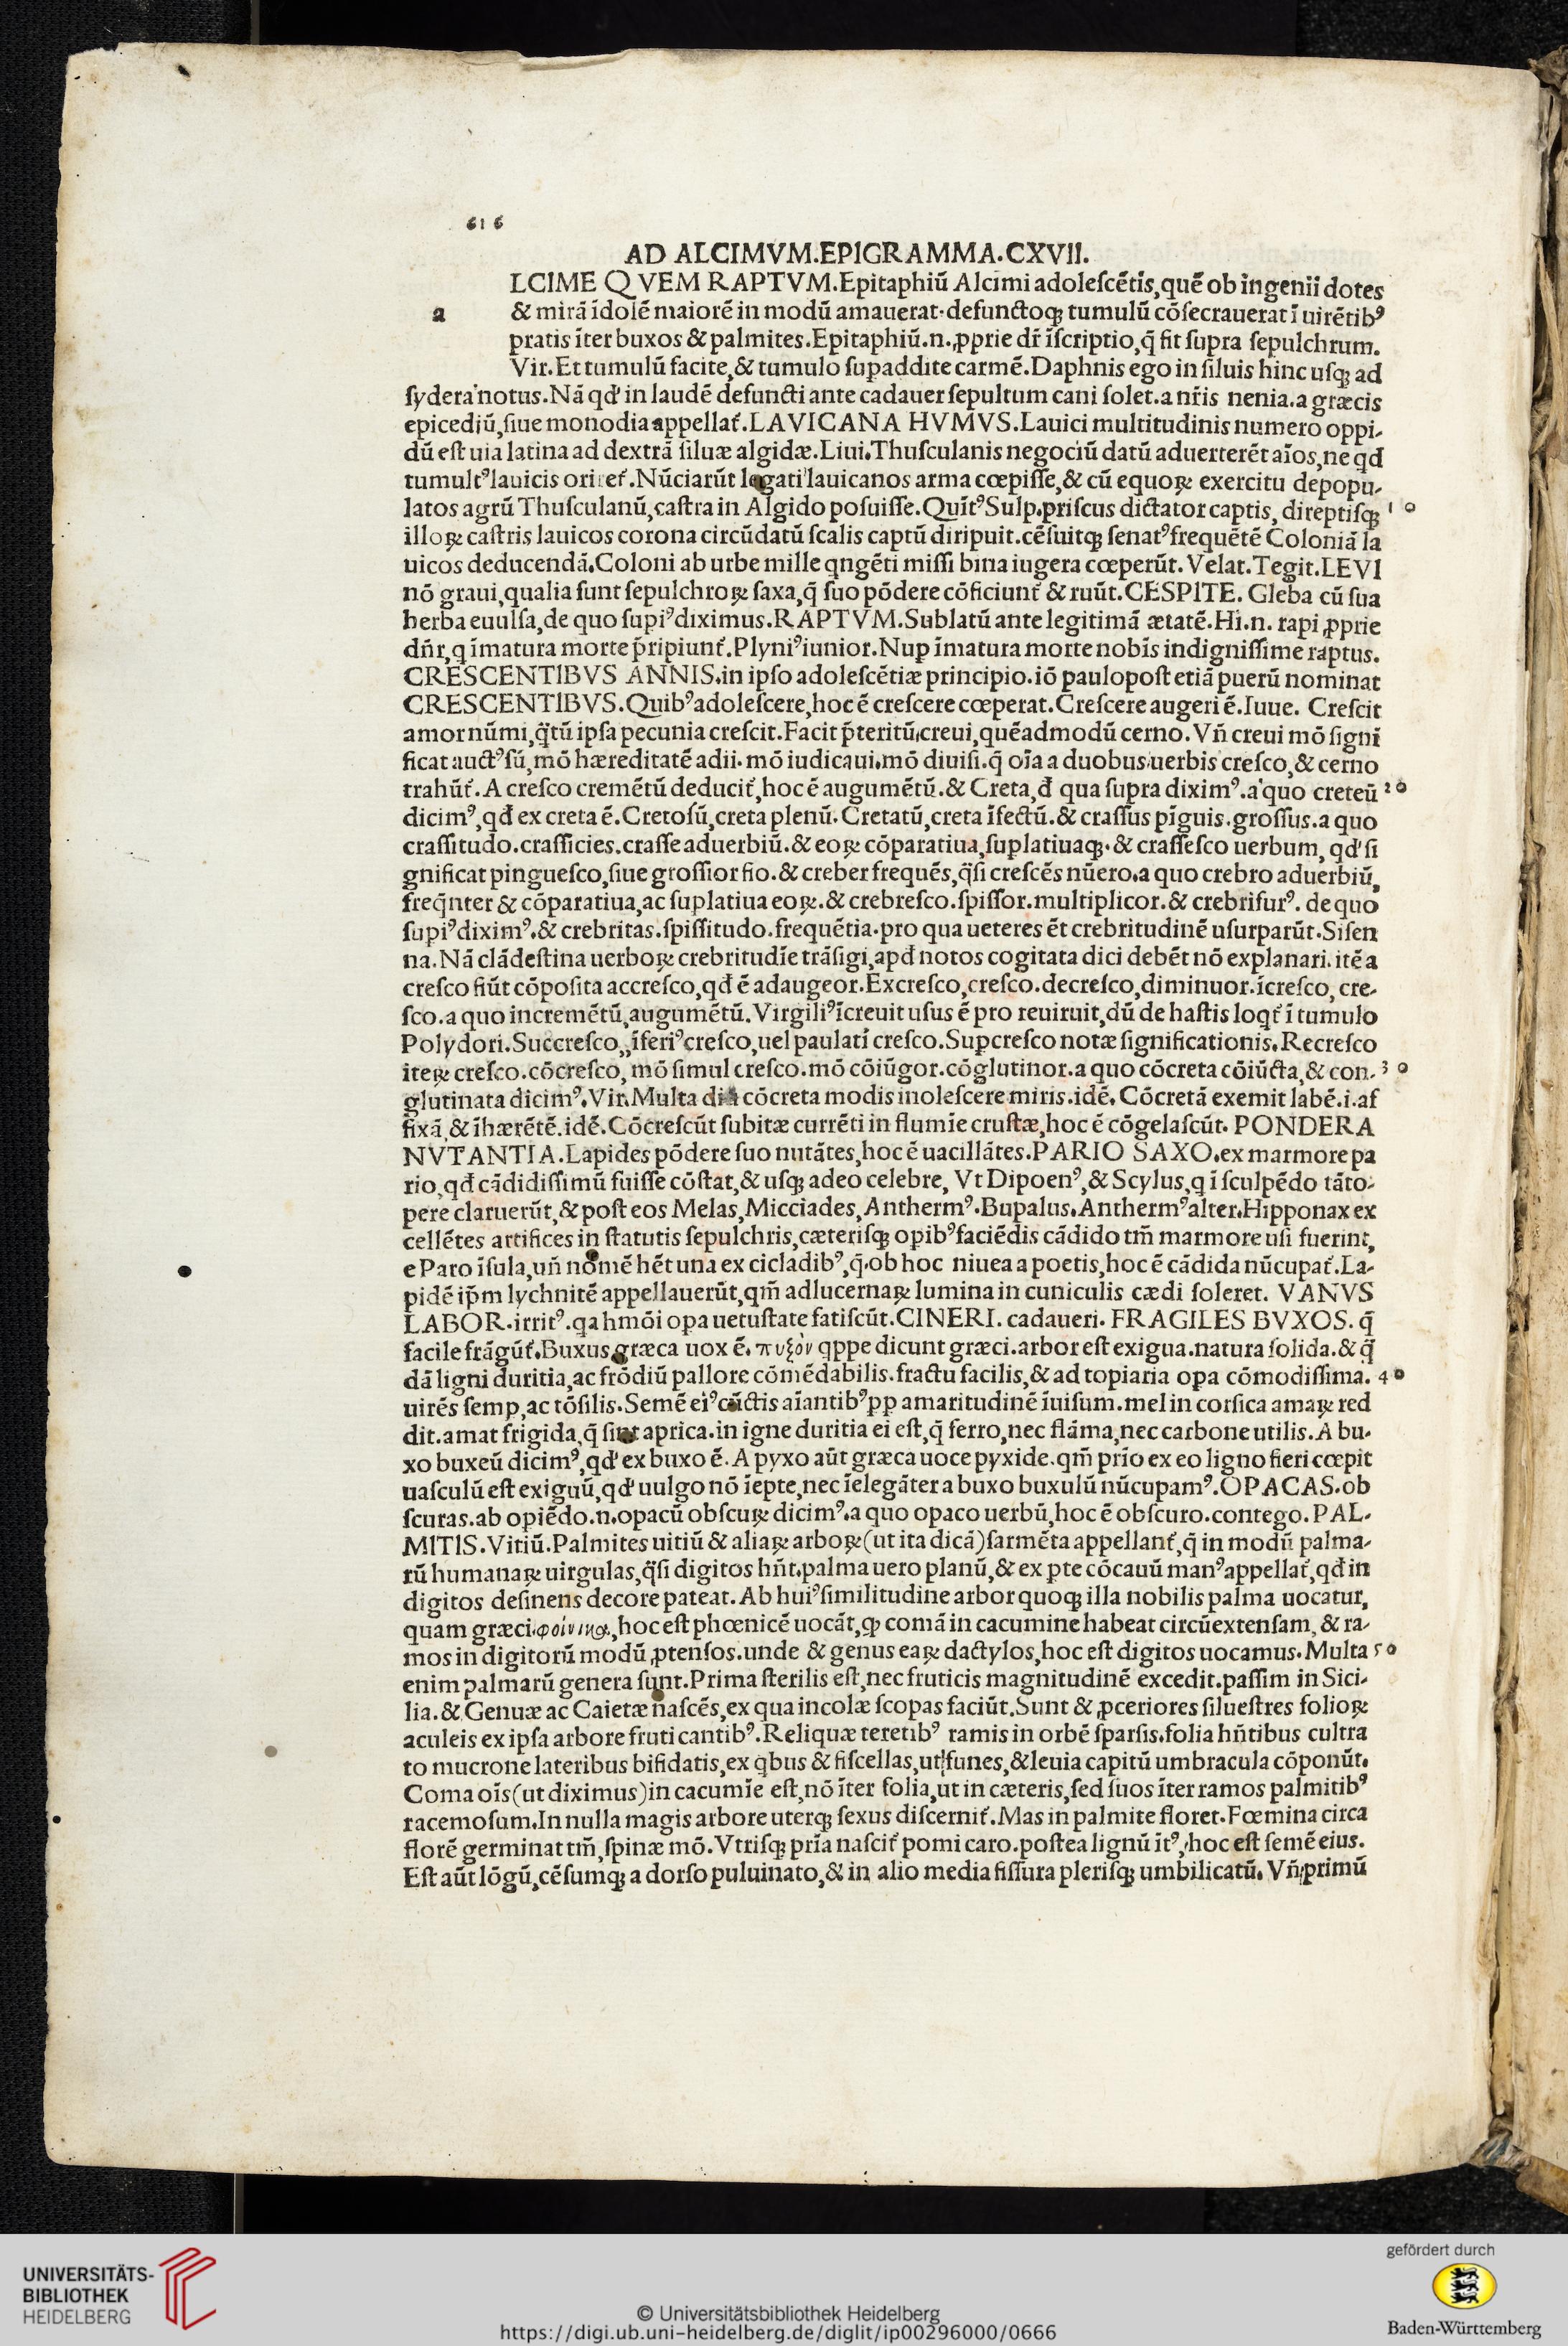 616
AD ALCIMVM.EPIGRAMMA.CXVII.
LCIME QVEM RAPTVM.Epitaphiū Alcimi adoleſcētis,quē ob ingenii dotes
a & mirā īdolē maiorē in modū amauerat.defunctoqꝫ tumulū cōſecrauerat ī uirētibꝰ
pratis īter buxos & palmites.Epitaphiū.n.ꝓprie dr̄ īſcriptio,q̄ fit ſupra ſepulchrum.
Vir.Et tumulū facite,& tumulo ſupaddite carmē.Daphnis ego in ſiluis hinc uſqꝫ ad
ſydera notus.Nā qd' in laudē defuncti ante cadauer ſepultum cani ſolet.a nr̄is nenia.a græcis
epicediū,ſiue monodia appellat̄.LAVICANA HVMVS.Lauici multitudinis numero oppi-
dū eſt uia latina ad dextrā ſiluæ algidæ.Liui.Thuſculanis negociū datū aduerterēt aīos,ne qd
tumultꝰ lauicis oriret̄.Nūciarūt legati lauicanos arma cœpiſſe,& cū equoꝝ exercitu depopu-
latos agrū Thuſculanū,caſtra in Algido poſuiſſe.Quītꝰ Sulp.priſcus dictator captis, direptiſqꝫ 10
illoꝝ caſtris lauicos corona circūdatū ſcalis captū diripuit.cēſuitqꝫ ſenatꝰ frequētē Coloniā la
uicos deducendā.Coloni ab urbe mille qngēti miſſi bina iugera cœperūt. Velat.Tegit.LEVI
nō graui,qualia ſunt ſepulchroꝝ ſaxa,q̄ ſuo pōdere cōficiunt̄ & ruūt.CESPITE. Gleba cū ſua
herba euulſa,de quo ſupiꝰ diximus.RAPTVM.Sublatū ante legitimā ætatē.Hi.n. rapi ꝓprie
dn̄r,q īmatura morte p̄ripiunt̄.Plyniꝰ iunior.Nup īmatura morte nobis indigniſſime raptus.
CRESCENTIBVS ANNIS.in ipſo adoleſcētiæ principio.iō paulopoſt etiā puerū nominat
CRESCENTIBVS.Quibꝰ adoleſcere,hoc ē creſcere cœperat.Creſcere augeri ē.Iuue. Creſcit
amor nūmi,q̄tū ipſa pecunia creſcit.Facit p̄teritū,creui,quēadmodū cerno.Vn̄ creui mō ſigni
ficat auctꝰ ſū,mō hæreditatē adii.mō iudicaui.mō diuiſi.q̄ oīa a duobus uerbis creſco,& cerno
trahūt̄.A creſco cremētū deducit̄,hoc ē augumētū.& Creta,đ qua ſupra diximꝰ.a quo creteū 20
dicimꝰ,qđ ex creta ē.Cretoſū,creta plenū.Cretatū,creta īfectū.& craſſus pīguis.groſſus.a quo
craſſitudo.craſſicies.craſſe aduerbiū.& eoꝝ cōparatiua,ſuplatiuaqꝫ.& craſſeſco uerbum, qd' ſi
gnificat pingueſco,ſiue groſſior fio.& creber frequēs,q̄ſi creſcēs nūero.a quo crebro aduerbiū,
freq̄nter & cōparatiua,ac ſuplatiua eoꝝ.& crebreſco.ſpiſſor.multiplicor.& crebriſurꝰ. de quo
ſupiꝰ diximꝰ.& crebritas.ſpiſſitudo.frequētia.pro qua ueteres ēt crebritudinē uſurparūt.Siſen
na.Nā clādeſtina uerboꝝ crebritudīe trāſigi,apđ notos cogitata dici debēt nō explanari.itē a
creſco fiūt cōpoſita accreſco,qđ ē adaugeor.Excreſco,creſco.decreſco,diminuor.īcreſco, cre-
ſco.a quo incremētū,augumētū.Virgiliꝰ īcreuit uſus ē pro reuiruit,dū de haſtis loqt̄ ī tumulo
Polydori.Succreſco,,īferiꝰ creſco,uel paulatī creſco.Supcreſco notæ ſignificationis.Recreſco
iteꝝ creſco.cōcreſco, mō ſimul creſco.mō cōiūgor.cōglutinor.a quo cōcreta cōiūcta,& con- 30
glutinata dicimꝰ.Vir.Multa diu cōcreta modis inoleſcere miris.idē. Cōcretā exemit labē.i.af
fixā,& īhærētē.idē.Cōcreſcūt ſubitæ currēti in flumīe cruſtæ,hoc ē cōgelaſcūt. PONDERA
NVTANTIA.Lapides pōdere ſuo nutātes,hoc ē uacillātes.PARIO SAXO.ex marmore pa
rio,qđ cādidiſſimū fuiſſe cōſtat,& uſqꝫ adeo celebre, Vt Dipoenꝰ,& Scylus,q ī ſculpēdo tāto-
pere claruerūt,& poſt eos Melas,Micciades,Anthermꝰ.Bupalus.Anthermꝰ alter.Hipponax ex
cellētes artifices in ſtatutis ſepulchris,cæteriſqꝫ opibꝰ faciēdis cādido tm̄ marmore uſi fuerint,
e Paro īſula,un̄ nomē hēt una ex cicladibꝰ,q̄.ob hoc niuea a poetis,hoc ē cādida nūcupat̄.La-
pidē ip̄m lychnitē appellauerūt,qm̄ ad lucernaꝝ lumina in cuniculis cædi ſoleret. VANVS
LABOR.irritꝰ.qa hmōi opa uetuſtate fatiſcūt.CINERI. cadaueri. FRAGILES BVXOS. q̄
facile frāgūt̄.Buxus græca uox ē.πυξὸν qppe dicunt græci.arbor eſt exigua.natura ſolida.& q̄
dā ligni duritia,ac frōdiū pallore cōmēdabilis.fractu facilis,& ad topiaria opa cōmodiſſima. 40
uirēs ſemp,ac tōſilis.Semē eiꝰ cūctis aīantibꝰ pp amaritudinē īuiſum.mel in corſica amaꝝ red
dit.amat frigida,q̄ ſint aprica.in igne duritia ei eſt,q̄ ferro,nec flāma,nec carbone utilis.A bu-
xo buxeū dicimꝰ,qd' ex buxo ē.A pyxo aūt græca uoce pyxide.qm̄ prīo ex eo ligno fieri cœpit
uaſculū eſt exiguū,qd' uulgo nō īepte,nec īelegāter a buxo buxulū nūcupamꝰ.OPACAS.ob
ſcuras.ab opiēdo.n.opacū obſcuꝝ dicimꝰ.a quo opaco uerbū,hoc ē obſcuro.contego. PAL-
MITIS.Vitiū.Palmites uitiū & aliaꝝ arboꝝ(ut ita dicā)ſarmēta appellant̄,q̄ in modū palma-
rū humanaꝝ uirgulas,q̄ſi digitos hn̄t.palma uero planū,& ex pte cōcauū manꝰ appellat̄,qđ in
digitos deſinens decore pateat.Ab huiꝰ ſimilitudine arbor quoqꝫ illa nobilis palma uocatur,
quam græci φοίνικα,hoc eſt phœnicē uocāt,ꝙ comā in cacumine habeat circūextenſam, & ra-
mos in digitorū modū ꝓtenſos.unde & genus eaꝝ dactylos,hoc eſt digitos uocamus.Multa 50
enim palmarū genera ſunt.Prima ſterilis eſt,nec fruticis magnitudinē excedit.paſſim in Sici-
lia.& Genuæ ac Caietæ naſcēs,ex qua incolæ ſcopas faciūt.Sunt & ꝓceriores ſilueſtres folioꝝ
aculeis ex ipſa arbore fruticantibꝰ.Reliquæ teretibꝰ ramis in orbē ſparſis.folia hn̄tibus cultra
to mucrone lateribus bifidatis,ex qbus & fiſcellas,ut funes,&leuia capitū umbracula cōponūt.
Coma oīs(ut diximus)in cacumīe eſt,nō īter folia,ut in cæteris,ſed ſuos īter ramos palmitibꝰ
racemoſum.In nulla magis arbore uterqꝫ ſexus diſcernit̄.Mas in palmite floret.Fœmina circa
florē germinat tm̄,ſpinæ mō.Vtriſqꝫ prīa naſcit̄ pomi caro.poſtea lignū ītꝰ,hoc eſt ſemē eius.
Eſt aūt lōgū,cēſumqꝫ a dorſo puluinato,& in alio media fiſſura pleriſqꝫ umbilicatū. Vn̄ primū
UNIVERSITÄTS-
BIBLIOTHEK
HEIDELBERG
© Universitätsbibliothek Heidelberg
https://digi.ub.uni-heidelberg.de/diglit/ip00296000/0666
gefördert durch
Baden-Württemberg